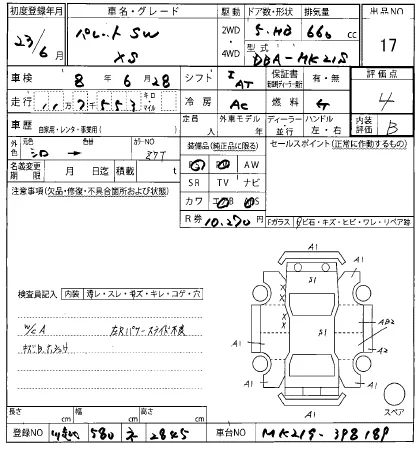 初度登録年月 車名・グレード 駆動 ドア数・形状 排気量 出品NO
23/6月 パレットSW XS 2WD 4WD 5.HB 660cc 17
型式 DBA-MK21S
車検 8年6月28 シフト IAT 保証書 有・無 評価点
走行 キロ マイル 冷房 AC 燃料 4
車歴 自家用・レンタ・事業用( ) 定員 人 外車モデル 年 ディーラー 並行 ハンドル 左・右 内装評価 B
外色 元色 シロ → 色替 カラーNO Z7T 装備品(純正品に限る) セールスポイント(正常に作動するもの)
名義変更期限 月 日迄 積載 t AW
SR TV ナビ
注意事項(欠品・修復・不具合箇所および状態) カワ
R券 10,270円 Fガラス 飛石・キズ・ヒビ・ワレ・リペア跡
A1 A1
S1
検査員記入 内装 薄レ・スレ・キズ・キレ・コゲ・穴
W/C A 左Rパワースライド不良
A1 S1 AB2
A1 A2
A1 A1
スペア
長さ cm 幅 cm 高さ cm
登録NO 580 ネ 2845 車台NO MK21S-398189